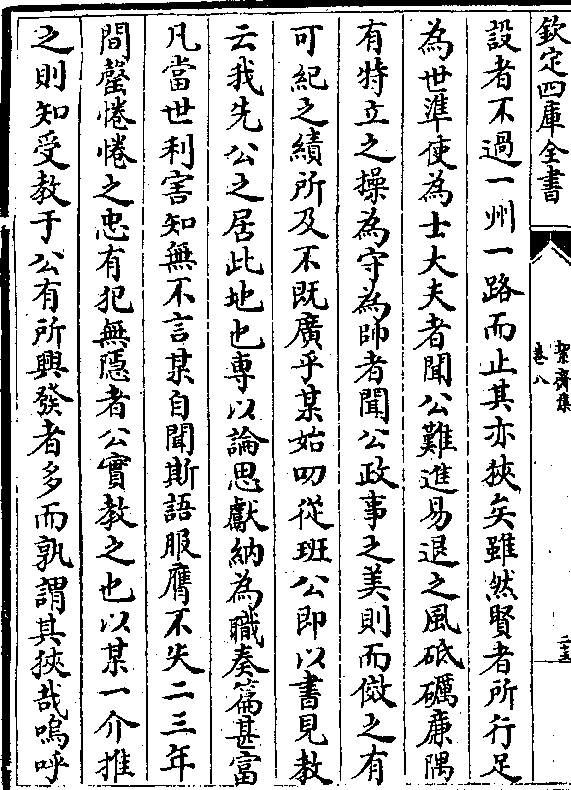 欽定四庫全書
絜齋集
卷八
二十五
設者不過一州一路而止其亦狹矣雖然賢者所行足
為世準使為士大夫者聞公難進易退之風砥礪廉隅
有特立之操為守為帥者聞公政事之美則而傚之有
可紀之績所及不既廣乎某始叨從班公即以書見教
云我先公之居此地也專以論思獻納為職奏篇甚富
凡當世利害知無不言某自聞斯語服膺不失二三年
間罄惓惓之忠有犯無隱者公實教之也以某一介推
之則知受教于公有所興發者多而孰謂其狹哉嗚呼